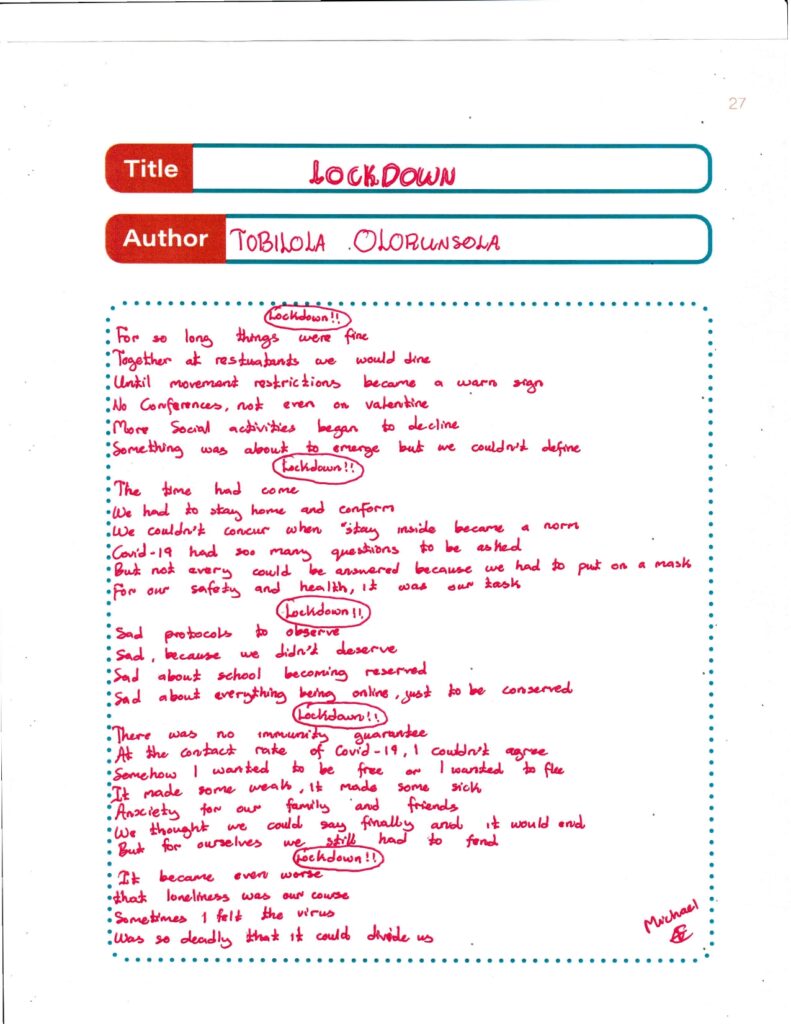 27
Title LOCKDOWN
Author TOBILOLA OLORUNSOLA
Lockdown!!
For so long things were fine
Together at restuatants we would dine
Until movement restrictions became a warn sign
No Conferences, not even on valentine
More Social activities began to decline
Something was about to emerge but we couldn't define
Lockdown!!
The time had come
We had to stay home and conform
We couldn't concur when "stay inside became a norm
Covid-19 had soo many questions to be asked
But not every could be answered because we had to put on a mask
For our safety and health, it was our task
Lockdown!!
Sad protocols to observe
Sad, because we didn't deserve
Sad about school becoming reserved
Sad about everything being online, just to be conserved
Lockdown!!
There was no immunity guarantee
At the contact rate of Covid-19, I couldn't agree
Somehow I wanted to be free or I wanted to flee
It made some weak, it made some sick
Anxiety for our family and friends
We thought we could say finally and it would end
But for ourselves we still had to fend
Lockdown!!
It became even worse
that loneliness was our course
Sometimes I felt the virus
Was so deadly that it could divide us
Michael